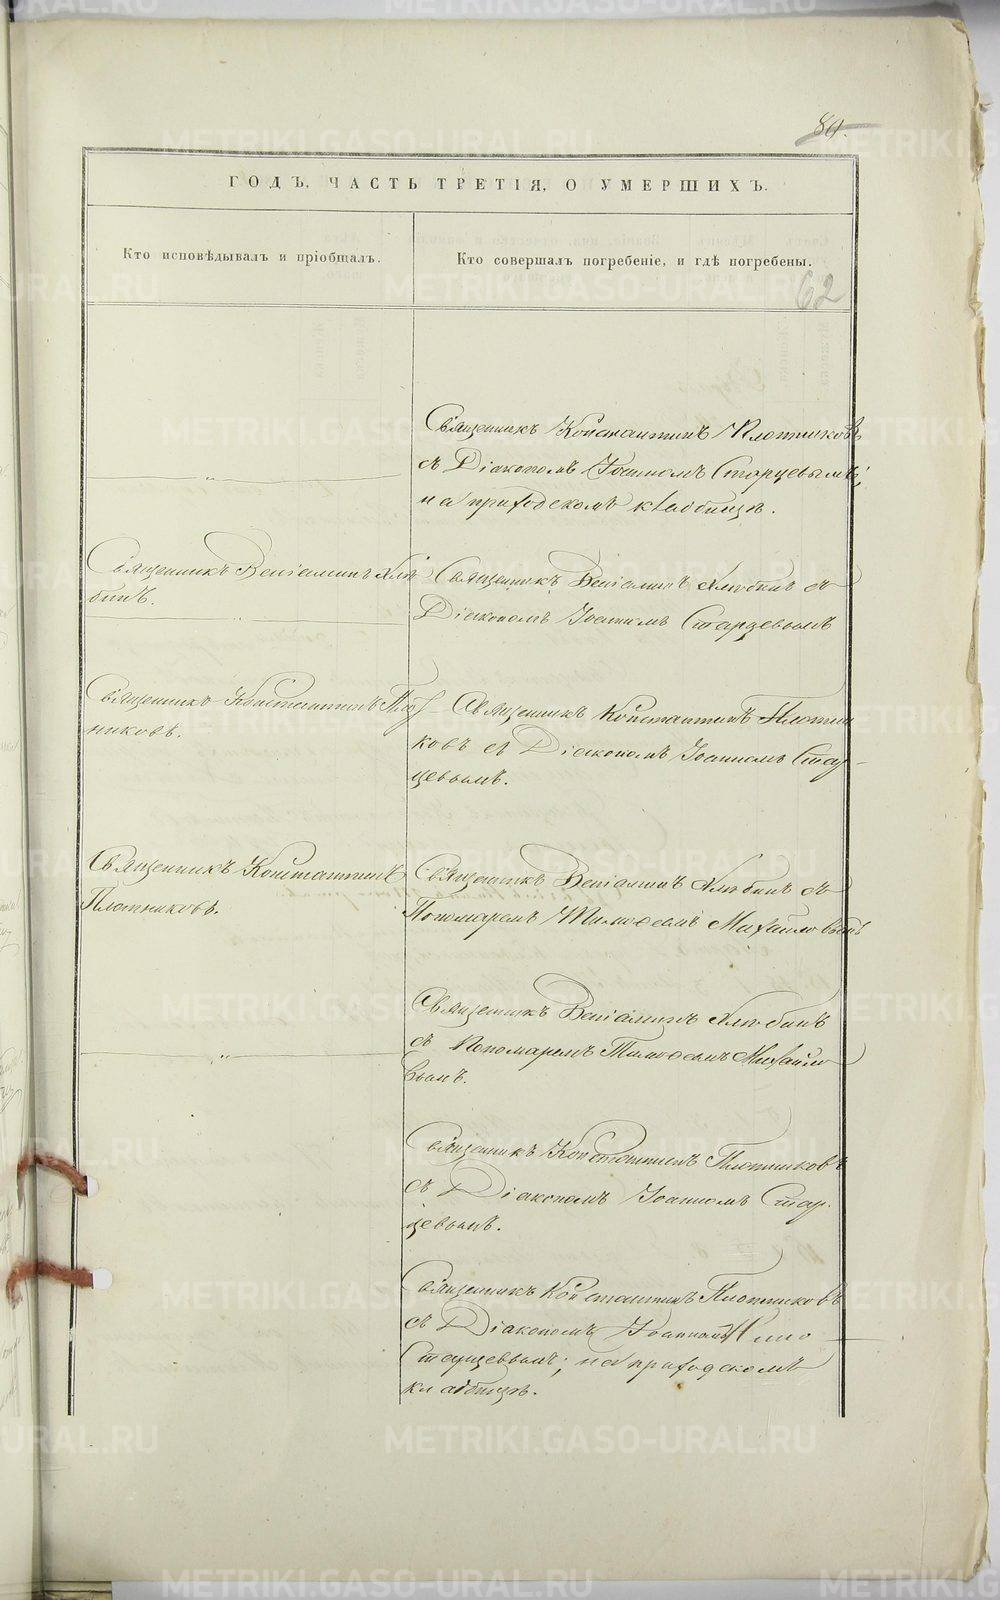 80.
ГОДЪ, ЧАСТЬ ТРЕТІЯ, О УМЕРШИХЪ.
Кто исповѣдывалъ и пріобщалъ.
Кто совершалъ погребеніе, и гдѣ погребены.
62
Священникъ Констаптинъ Плотниковъ
съ Діакономъ Іоанномъ Старцевымъ;
на приходскомъ кладбищѣ.
Священникъ Веніаминъ Хлѣ
бинъ.
Священникъ Веніаминъ Хлѣбинъ съ
Діакономъ Іоанномъ Старцевымъ
Священникъ Константинъ Плот
никовъ.
Священникъ Константинъ Плотни
ковъ съ Діакономъ Іоанномъ Стар-
цевымъ.
Священникъ Константинъ
Плотниковъ.
Священникъ Веніаминъ Хлѣбинъ съ
Пономаремъ Тимоѳеемъ Михайловымъ
Священникъ Веніаминъ Хлѣбинъ
съ Пономаремъ Тимоѳеемъ Михайло
вымъ.
Священникъ Константинъ Плотниковъ
съ Діакономъ Іоанномъ Стар-
цевымъ.
Священникъ Константинъ Плотниковъ
съ Діакономъ Іоанномъ
Старцевымъ; на приходскомъ
кладбищѣ.
METRIKI.GASO-URAL.RU